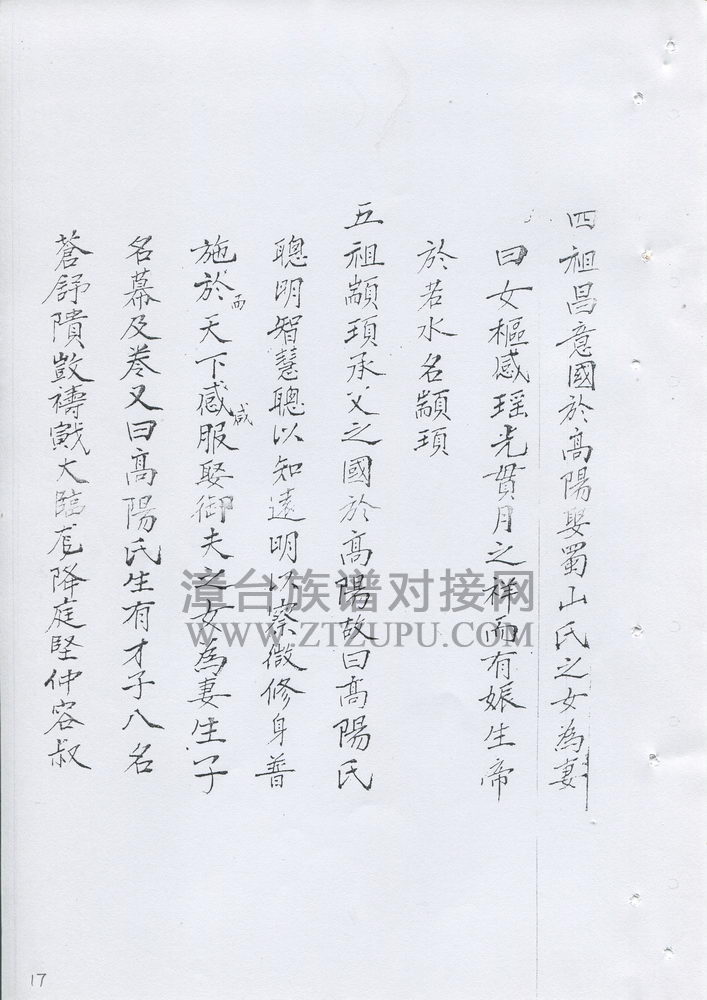 四祖昌意國於高陽娶蜀山氏之女為妻
曰女樞感瑶光貫月之祥而有娠生帝
於若水名顓頊
五祖顓頊承父之國於高陽故曰高陽氏
聰明智慧聰以知遠明以察微修身普
施於而天下感咸服娶御夫之女為妻生子
名幕及卷又曰高陽氏生有才子八名
蒼舒隤敳禱戭大臨尨降庭堅仲容叔
漳台族谱对接网
WWW.ZTZUPU.COM
17